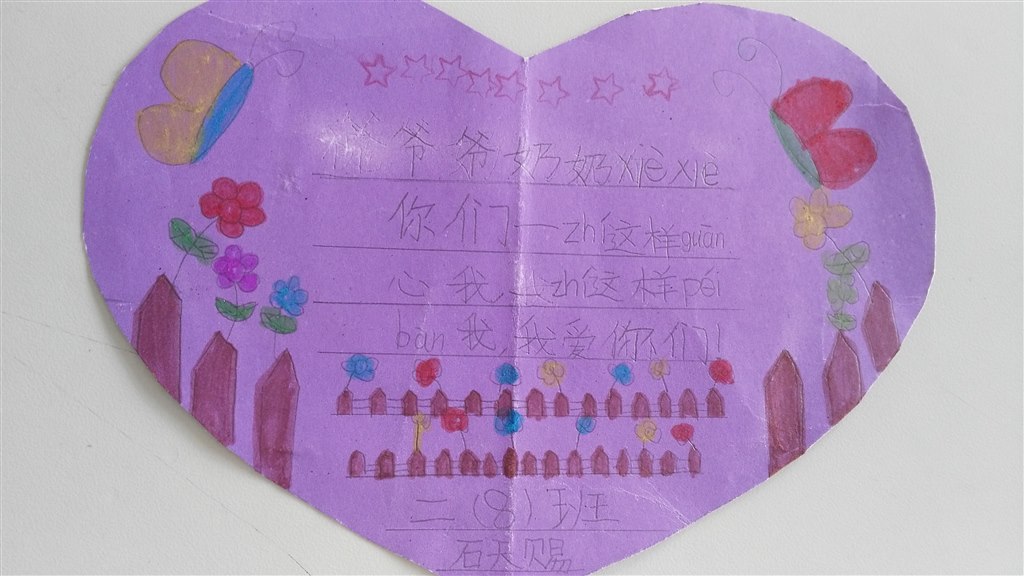 爷爷奶奶xièxiè
你们一zhí这样guān
心我,一zhí这样péi
bàn我,我爱你们!
二(8)班
石天赐